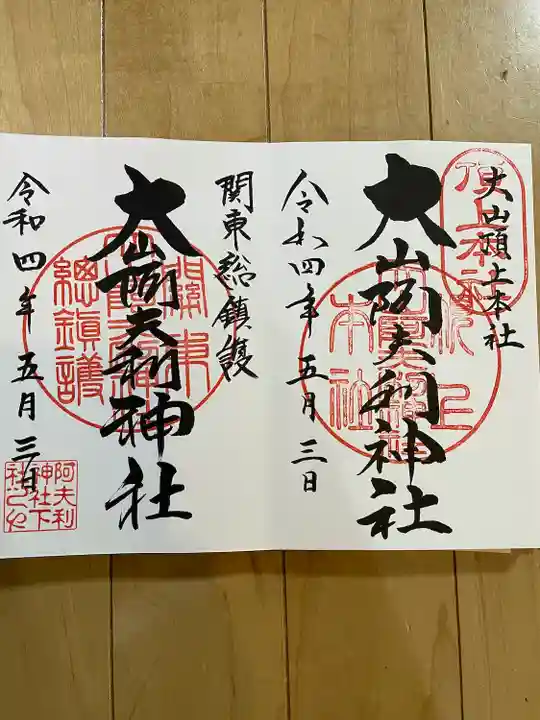 大山頂上本社
大山阿夫利神社
令和四年五月三日
関東総鎮護
大山阿夫利神社
令和四年五月三日
關東
總鎮護
頂上本社
阿夫利
神社下
社之印